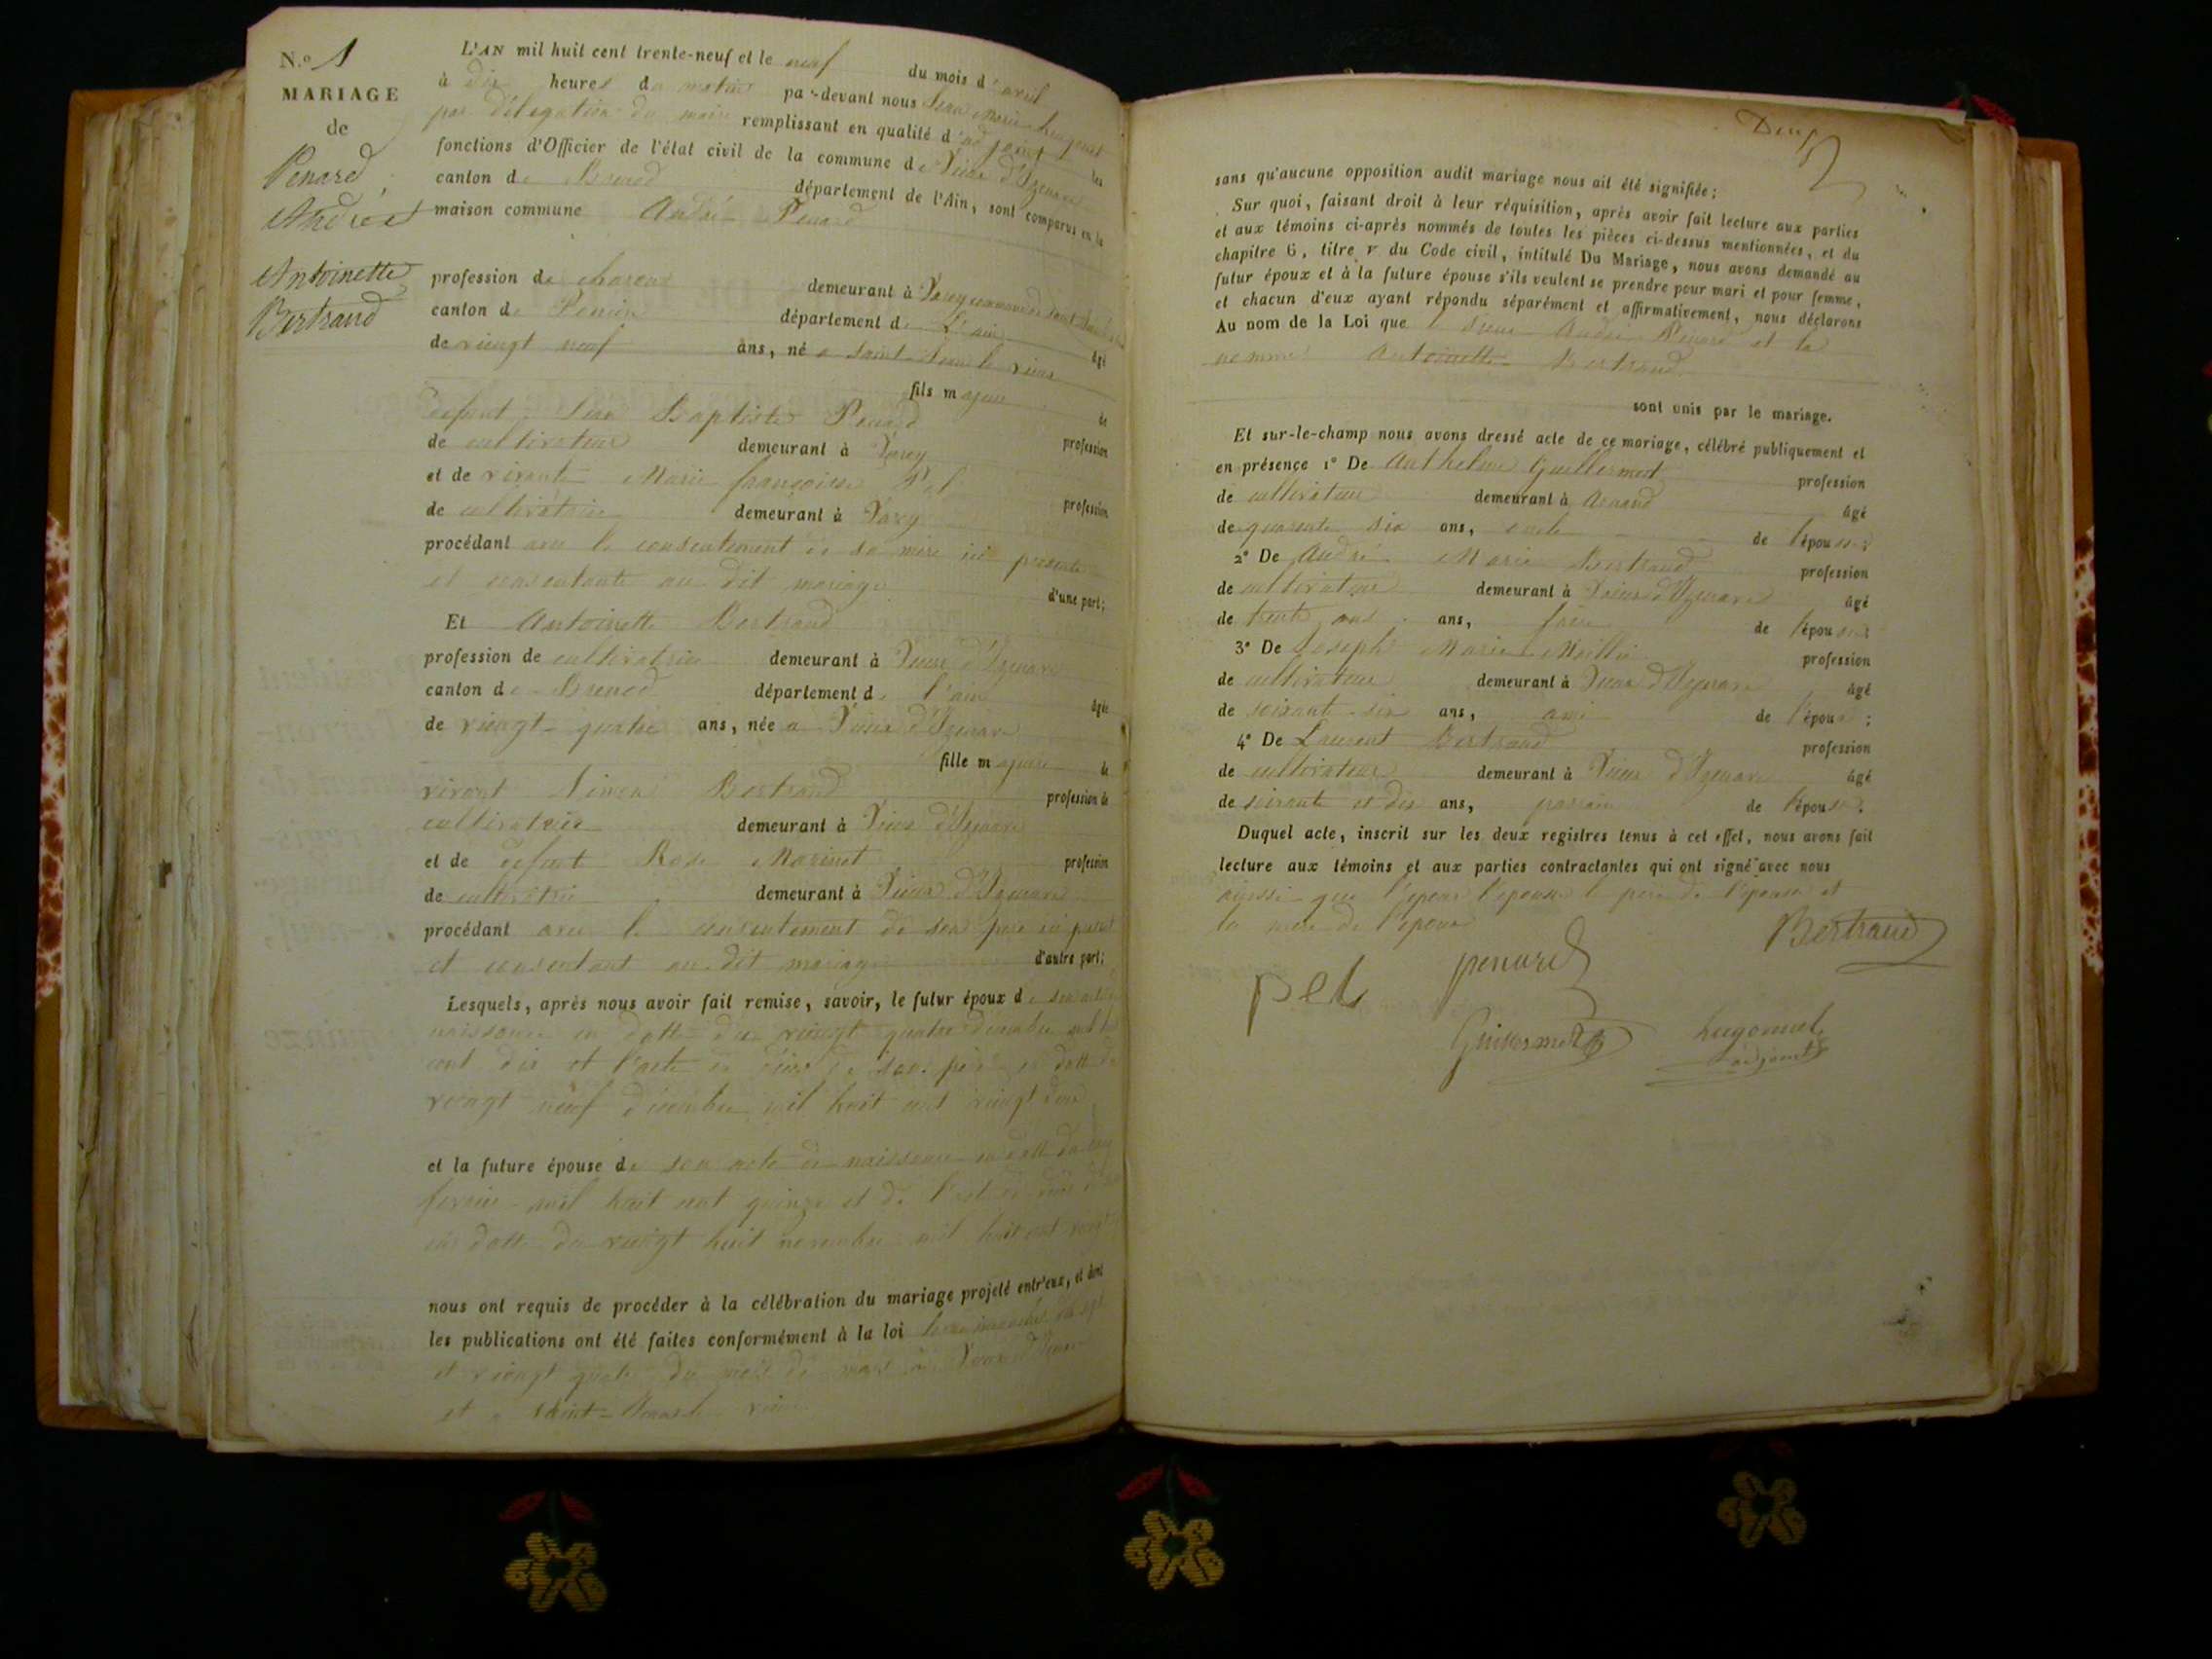 N.º 1
MARIAGE
de
Penard
André et
Antoinette
Bertrand
L'AN mil huit cent trente-neuf et le neuf du mois d'avril
à dix heures du matin par-devant nous Jean Marie
par délégation du maire remplissant en qualité d'adjoint les
fonctions d'Officier de l'état civil de la commune de Vieux d'Izenave
canton de Brenod département de l'Ain, sont comparus en la
maison commune André Penard
profession de demeurant à Varey commune de Saint Jean
canton de Poncin département de L'ain âgé
de vieingt neuf ans, né a saint Jean le vieux
fils majeur de
defunt Jean Baptiste Penard profession
de cultivateur demeurant à Varey
et de vivante Marie françoise Pel profession
de cultivatrice demeurant à Varey
procédant avec le consentement de sa mère ici presente
et consentante au dit mariage d'une part;
Et Antoinette Bertrand
profession de cultivatrice demeurant à Vieux d'Izenave
canton de Brenod département de l'ain âgée
de vieingt-quatre ans, née a Vieux d'Izenave
fille majeure de
vivant Bertrand profession de
cultivateur demeurant à Vieux d'Izenave
et de defunt Rose Marinet profession
de cultivatrice demeurant à Vieux d'Izenave
procédant avec le consentement de son père ici présent
et consentant au dit mariage d'autre part;
Lesquels, après nous avoir fait remise, savoir, le futur époux de son acte de
naissance en datte du vieingt quatre décembre mil huit
cent dix et l'acte de décès de son père en datte du
vieingt neuf décembre mil huit cent vieingt deux
et la future épouse de son acte de naissance en datte du
fevrier mil huit cent quinze et de l'acte de décès de
en datte du vieingt huit novembre mil huit cent vieingt
nous ont requis de procéder à la célébration du mariage projeté entr'eux, et dont
les publications ont été faites conformément à la loi
et vieingt quatre du mois de mars à Vieux d'Izenave
et a saint-Jean le vieux
Deux
sans qu'aucune opposition audit mariage nous ait été signifiée;
Sur quoi, faisant droit à leur réquisition, après avoir fait lecture aux parties
et aux témoins ci-après nommés de toutes les pièces ci-dessus mentionnées, et du
chapitre 6, titre V du Code civil, intitulé Du Mariage, nous avons demandé au
futur époux et à la future épouse s'ils veulent se prendre pour mari et pour femme,
et chacun d'eux ayant répondu séparément et affirmativement, nous déclarons
Au nom de la Loi que le sieur André Penard et la
nommé Antoinette Bertrand
sont unis par le mariage.
Et sur-le-champ nous avons dressé acte de ce mariage, célébré publiquement et
en présence 1º De Anthelme Guillermet profession
de cultivateur demeurant à âgé
de quarente six ans, oncle de l'épouse;
2º De André Marie Bertrand profession
de cultivateur demeurant à Vieux d'Izenave âgé
de trente ans, frère de l'épouse;
3º De Joseph Marie profession
de cultivateur demeurant à Vieux d'Izenave âgé
de soixante six ans, ami de l'époux;
4º De Laurent Bertrand profession
de cultivateur demeurant à Vieux d'Izenave âgé
de soixante et dix ans, parrain de l'épouse.
Duquel acte, inscrit sur les deux registres tenus à cet effet, nous avons fait
lecture aux témoins et aux parties contractantes qui ont signé avec nous
ainsi que l'époux l'épouse le père de l'épouse et
la mère de l'époux
Bertrand
pel penard
Guillermet hugonnet
adjoint